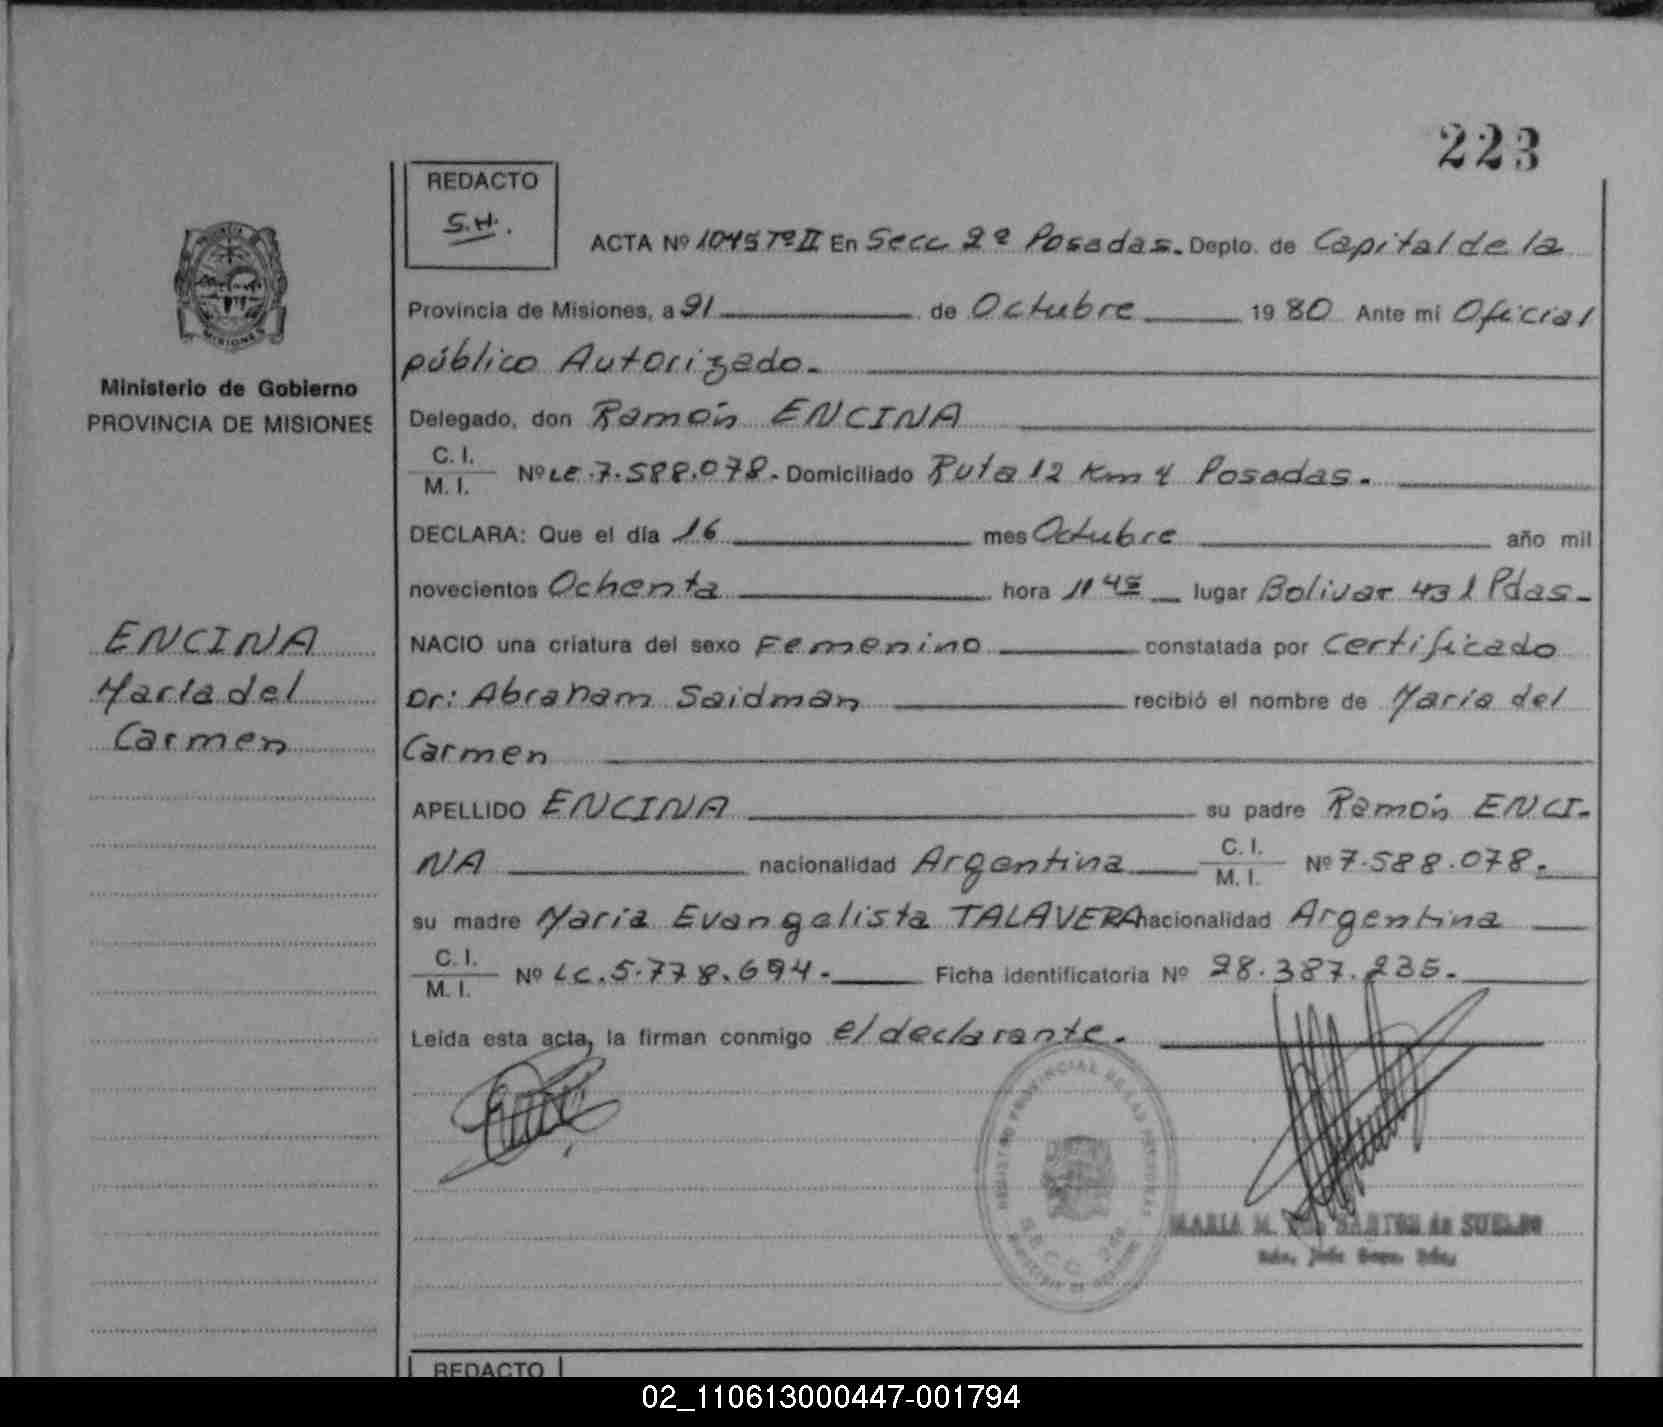 223
REDACTO
S.H.
ACTA Nº 1045 Tº II En Secc 2º Posadas. Depto. de Capital de la
Provincia de Misiones, a 21 de Octubre 1980 Ante mi Oficial
público Autorizado.
Ministerio de Gobierno
PROVINCIA DE MISIONES
Delegado, don Ramón ENCINA
C. I.
M. I. Nº LE.7.588.078. Domiciliado Ruta 12 Km 4 Posadas.
DECLARA: Que el día 16 mes Octubre año mil
novecientos Ochenta hora 11 45 lugar Bolivar 431 Pdas.
ENCINA
María del
Carmen
NACIO una criatura del sexo Femenino constatada por Certificado
Dr: Abraham Saidman recibió el nombre de María del
Carmen
APELLIDO ENCINA su padre Ramón ENCI-
NA nacionalidad Argentina C. I. M. I. Nº 7.588.078.
su madre María Evangelista TALAVERA nacionalidad Argentina
C. I.
M. I. Nº LC.5.778.694. Ficha identificatoria Nº 28.387.235.
Leída esta acta, la firman conmigo el declarante.
MARIA M. de SUELDO
REDACTO
02_110613000447-001794